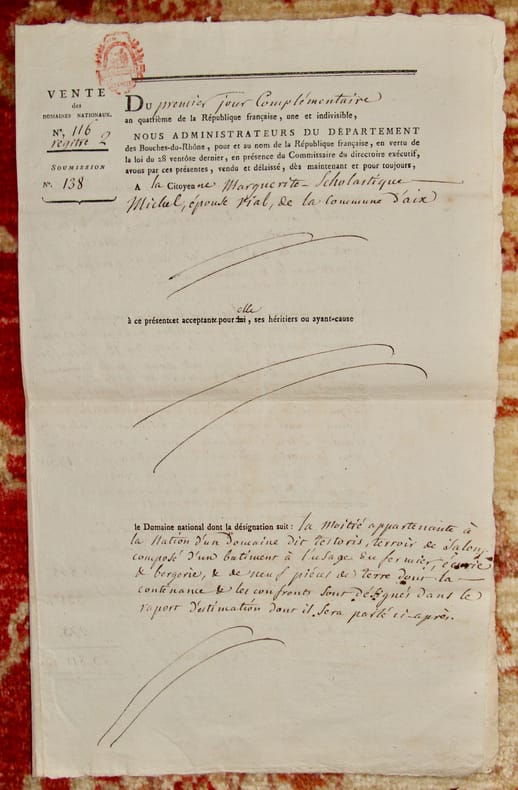 VENTE
des
DOMAINES NATIONAUX.
N°. 116
regitre 2
SOUMISSION
N°. 138
Du premier jour Complémentaire
an quatrième de la République française, une et indivisible,
NOUS ADMINISTRATEURS DU DÉPARTEMENT
des Bouches-du-Rhône, pour et au nom de la République française, en vertu de
la loi du 28 ventôse dernier, en présence du Commissaire du directoire exécutif,
avons par ces présentes, vendu et délaissé, dès maintenant et pour toujours,
A la Citoyenne Marguerite-Scholastique
Michel, épouse Vial, de la Commune d'aix
elle
à ce présente et acceptante pour lui, ses héritiers ou ayant-cause
le Domaine national dont la désignation suit : la moitié appartenante à
la Nation d'un Domaine dit testoris, terroir de Salon,
composé d'un batiment à l'usage du fermier, écurie
& bergerie, & de neuf piéces de terre dont la
contenance & les confronts sont désignés dans le
raport d'estimation dont il sera parlé ci-après.